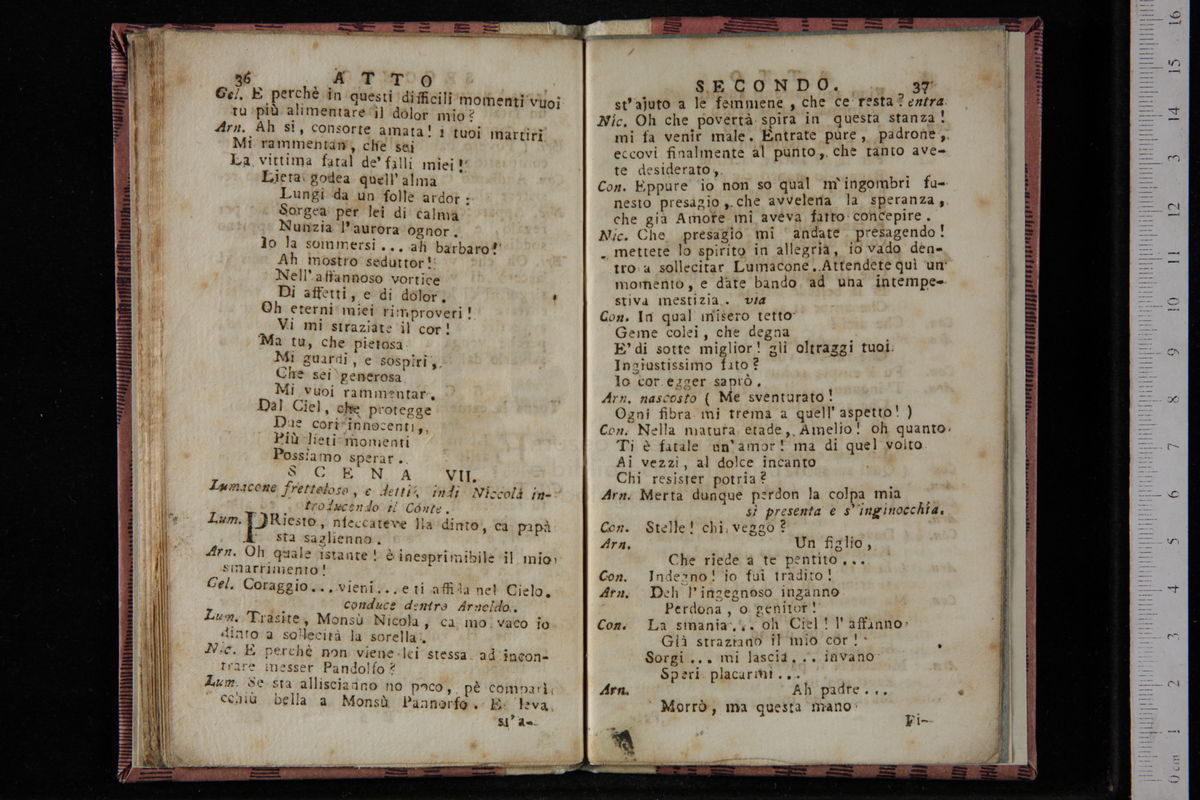 36 ATTO
Gel. E perchè in questi difficili momenti vuoi
tu più alimentare il dolor mio?
Arn. Ah si, consorte amata! i tuoi martiri
Mi rammentan, che sei
La vittima fatal de' falli miei!
Lieta godea quell' alma
Lungi da un folle ardor:
Sorgea per lei di calma
Nunzia l'aurora ognor.
Io la sommersi... ah barbaro!
Ah mostro seduttor!
Nell' affannoso vortice
Di affetti, e di dolor.
Oh eterni miei rimproveri!
Vi mi straziate il cor!
Ma tu, che pietosa
Mi guardi, e sospiri,
Che sei generosa
Mi vuoi rammentar.
Dal Ciel, che protegge
Due cori innocenti,
Più lieti momenti
Possiamo sperar.
SCENA VII.
Lumacone frettoloso, e detti, indi Niccolà in-
troducendo il Conte.
Lum. PRiesto, nfeccateve lla dinto, ca papà
sta saglienno.
Arn. Oh quale istante! è inesprimibile il mio
smarrimento!
Gel. Coraggio... vieni... e ti affida nel Cielo.
conduce dentro Arneldo.
Lum. Trasite, Monsù Nicola, ca mo vaco io
dinto a sollecità la sorella.
Nic. E perchè non viene lei stessa ad incon-
trare messer Pandolfo?
Lum. Se sta allisciando no poco, pè comparì
cchiù bella a Monsù Pannorfo. E leva
st' a-
SECONDO. 37
st' ajuto a le femmene, che ce resta? entra.
Nic. Oh che povertà spira in questa stanza!
mi fa venir male. Entrate pure, padrone,
eccovi finalmente al punto, che tanto ave-
te desiderato,
Con. Eppure io non so qual m'ingombri fu-
nesto presagio, che avvelena la speranza,
che già Amore mi aveva fatto concepire.
Nic. Che presagio mi andate presagendo!
mettete lo spirito in allegria, io vado den-
tro a sollecitar Lumacone. Attendete quì un
momento, e date bando ad una intempe-
stiva mestizia. via
Con. In qual misero tetto
Geme colei, che degna
E' di sotte miglior! gli oltraggi tuoi
Ingiustissimo fato?
Io cor egger saprò.
Arn. nascosto ( Me sventurato!
Ogni fibra mi trema a quell' aspetto! )
Con. Nella matura etade, Amelio! oh quanto
Ti è fatale un' amor! ma di quel volto
Ai vezzi, al dolce incanto
Chi resister potria?
Arn. Merta dunque perdon la colpa mia
si presenta e s' inginocchia.
Con. Stelle! chi veggo?
Arn. Un figlio,
Che riede a te pentito...
Con. Indegno! io fui tradito!
Arn. Deh l'ingegnoso inganno
Perdona, o genitor!
Con. La smania... oh Ciel! l' affanno
Già straziano il mio cor!
Sorgi... mi lascia... invano
Speri placarmi...
Arn. Ah padre...
Morrò, ma questa mano
Fi-